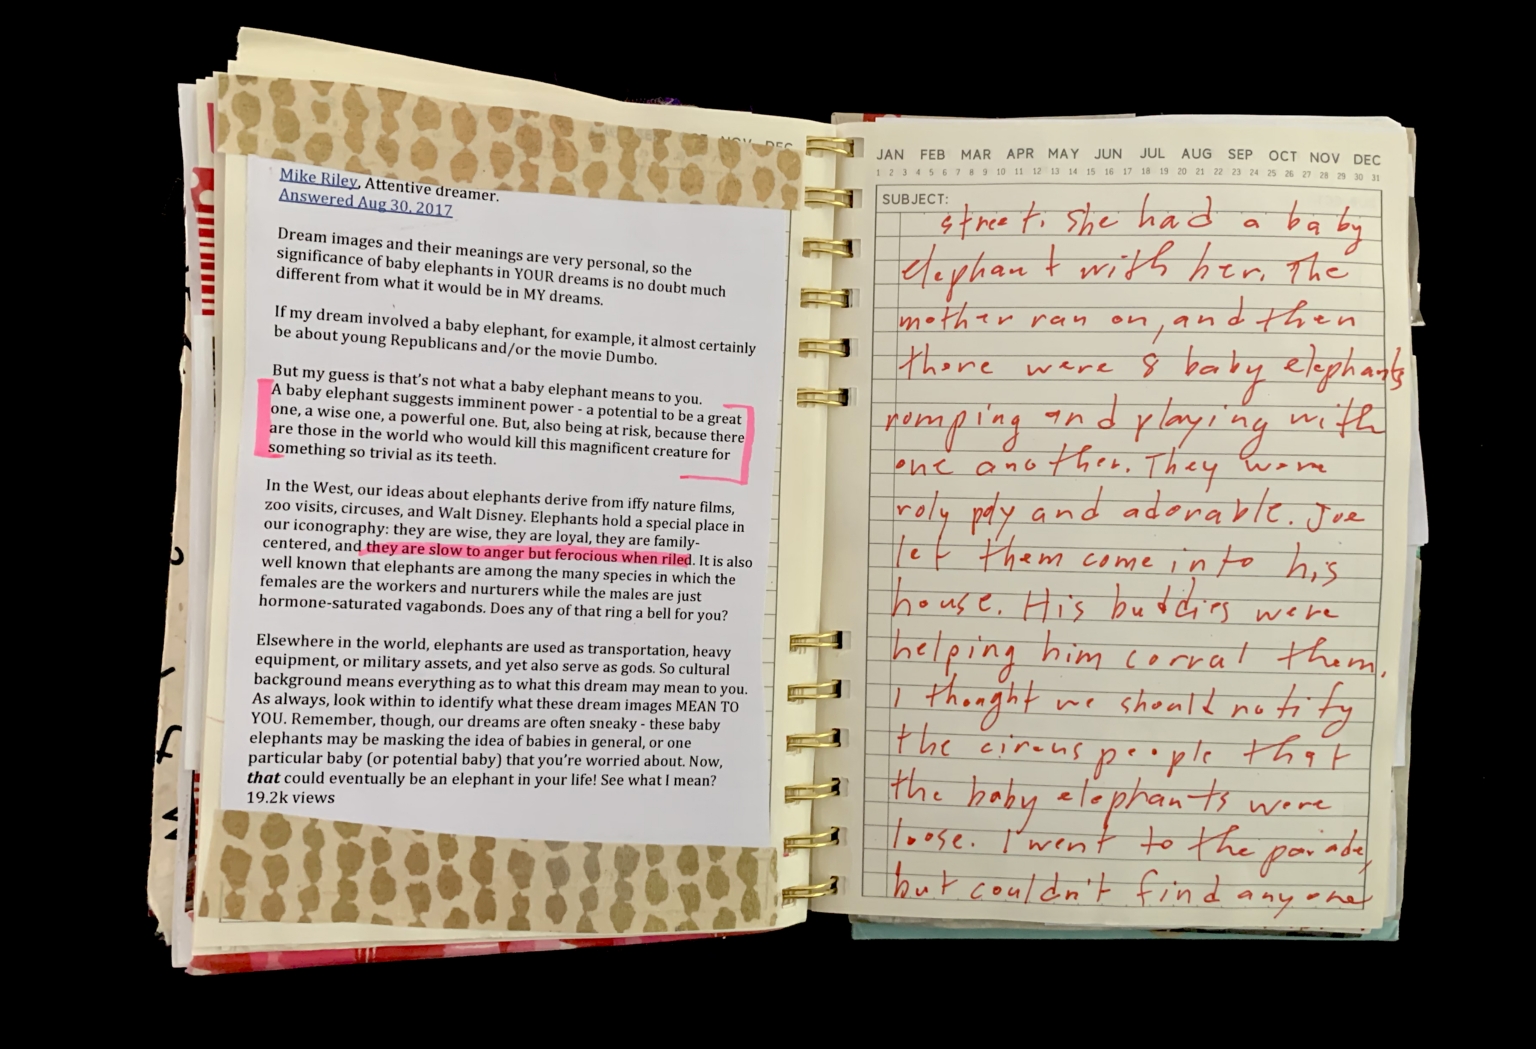 Mike Riley, Attentive dreamer.
Answered Aug 30, 2017
Dream images and their meanings are very personal, so the
significance of baby elephants in YOUR dreams is no doubt much
different from what it would be in MY dreams.
If my dream involved a baby elephant, for example, it almost certainly
be about young Republicans and/or the movie Dumbo.
But my guess is that's not what a baby elephant means to you.
A baby elephant suggests imminent power - a potential to be a great
one, a wise one, a powerful one. But, also being at risk, because there
are those in the world who would kill this magnificent creature for
something so trivial as its teeth.
In the West, our ideas about elephants derive from iffy nature films,
zoo visits, circuses, and Walt Disney. Elephants hold a special place in
our iconography: they are wise, they are loyal, they are family-
centered, and they are slow to anger but ferocious when riled. It is also
well known that elephants are among the many species in which the
females are the workers and nurturers while the males are just
hormone-saturated vagabonds. Does any of that ring a bell for you?
Elsewhere in the world, elephants are used as transportation, heavy
equipment, or military assets, and yet also serve as gods. So cultural
background means everything as to what this dream may mean to you.
As always, look within to identify what these dream images MEAN TO
YOU. Remember, though, our dreams are often sneaky - these baby
elephants may be masking the idea of babies in general, or one
particular baby (or potential baby) that you're worried about. Now,
that could eventually be an elephant in your life! See what I mean?
19.2k views
NOV DEC
JAN FEB MAR APR MAY JUN JUL AUG SEP OCT NOV DEC
1 2 3 4 5 6 7 8 9 10 11 12 13 14 15 16 17 18 19 20 21 22 23 24 25 26 27 28 29 30 31
SUBJECT:
street. She had a baby
elephant with her. The
mother ran on, and then
there were 8 baby elephants
romping and playing with
one another. They were
roly poly and adorable. Joe
let them come into his
house. His buddies were
helping him corral them.
I thought we should notify
the circus people that
the baby elephants were
loose. I went to the parade,
but couldn't find anyone